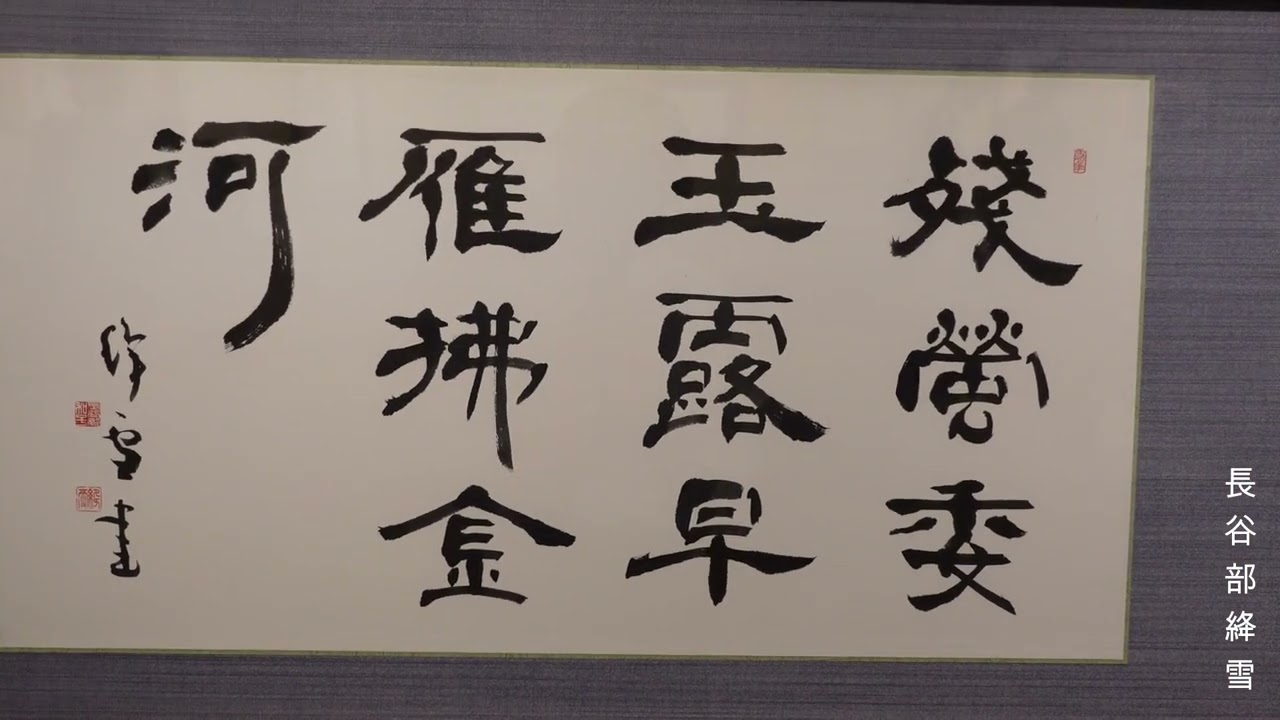 殘螢委
玉露早
雁拂金
河
絳雪書
長谷部絳雪